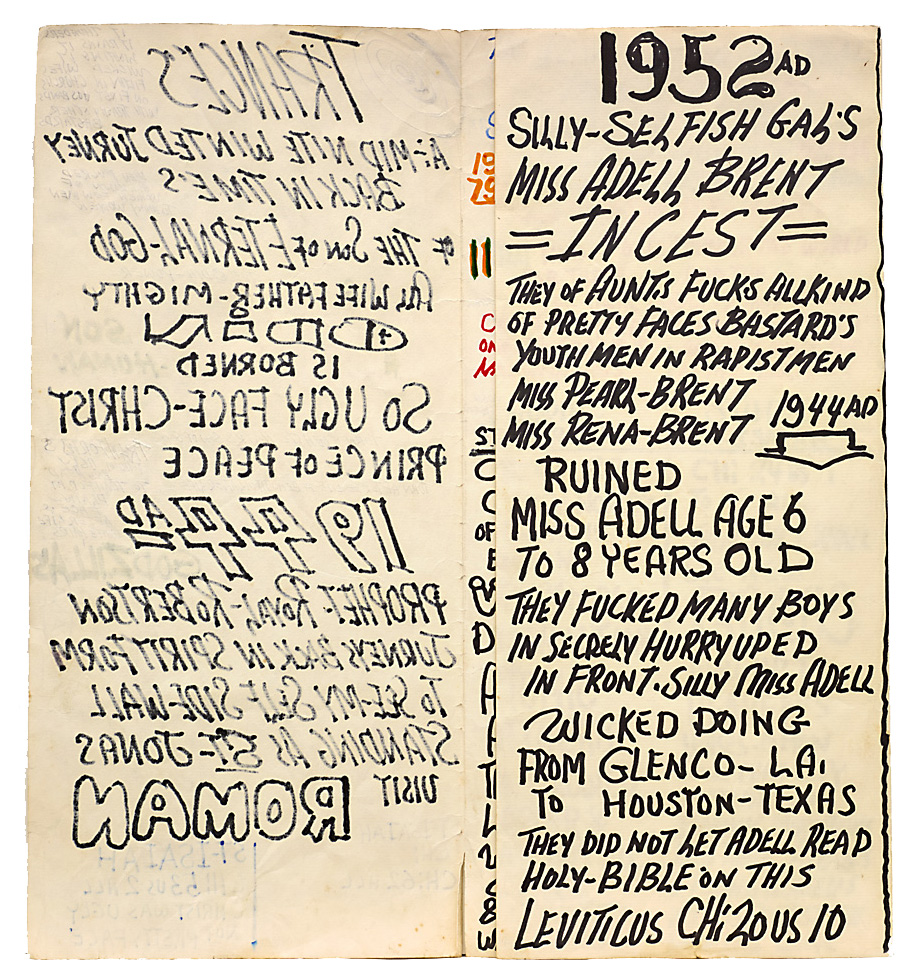 TRANCES
A-MID NITE WINTED JURNEY
BACK IN TIME'S
OF THE SON OF ETERNAL-GOD
ALL WIFE FATHER-MIGHTY
IS BORNED
SO UGLY FACE-CHRIST
PRINCE OF PEACE
PROPHET-ROYAL-ROBERTSON
JURNEYS BACK IN SPIRIT FORM
TO SEE MY SELF SIDE WALL
STANDING AS ST-JONAS
VISIT
ROMAN
1952 AD
SILLY-SELFISH GAL'S
MISS ADELL BRENT
=INCEST=
THEY OF AUNTS FUCKS ALLKIND
OF PRETTY FACES BASTARD'S
YOUTH MEN IN RAPISTMEN
MISS PEARL-BRENT
1944 AD
MISS RENA-BRENT
RUINED
MISS ADELL AGE 6
TO 8 YEARS OLD
THEY FUCKED MANY BOYS
IN SECRELY HURRYUPED
IN FRONT. SILLY MISS ADELL
WICKED DOING
FROM GLENCO-LA.
TO HOUSTON-TEXAS
THEY DID NOT LET ADELL READ
HOLY-BIBLE ON THIS
LEVITICUS CH:20 US 10